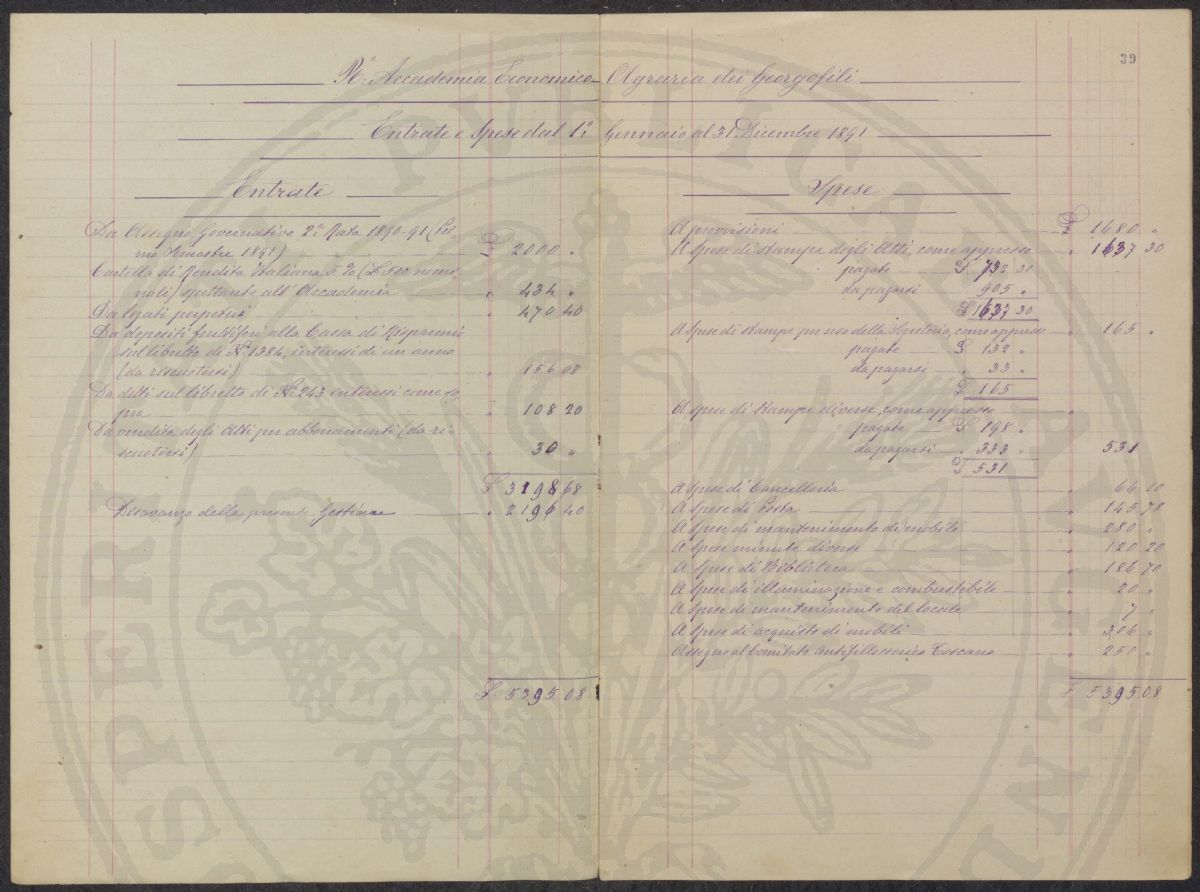 39
Rª. Accademia Economico-Agraria dei Georgofili
Entrate e Spese dal 1º Gennaio al 31 Dicembre 1891
Entrate
Da Assegno Governativo 2ª Rata 1890-91 (Pri-
mo Semestre 1891) £ 2000 "
Cartella di Rendita Italiana 5 % (£ 500 nomi-
nali) spettante all'Accademia " 434 "
Da legati perpetui " 470 40
Da depositi fruttiferi alla Cassa di Risparmio
sul libretto di Nº 1384, interessi di un anno
(da riscuotersi) " 156 08
Da detti sul libretto di Nº 243 interessi come so-
pra " 108 20
Da vendita degli Atti per abbonamenti (da ri-
scuotersi) " 30 "
£ 3198 68
Disavanzo della presente Gestione " 2196 40
£. 5395 08
Spese
A provvisioni £ 1680 "
A Spese di Stampa degli Atti, come appresso " 1637 30
pagate £ 732 30
da pagarsi " 905 "
£ 1637 30
A Spese di Stampe per uso della Segreteria, come appresso " 165 "
pagate £ 132 "
da pagarsi " 33 "
£ 165
A Spese di Stampe diverse, come appresso "
pagate £ 198 "
da pagarsi " 333 " 531
£ 531
A Spese di Cancelleria " 66 00
A Spese di Posta " 145 78
A Spese di mantenimento di mobili " 280 "
A Spese minute diverse " 120 20
A Spese di Biblioteca " 186 70
A Spese di illuminazione e combustibile " 20 "
A Spese di mantenimento del locale " 7 "
A Spese di acquisto di mobili " 306 "
Assegno al Comitato Antifillosserico Toscano " 250 "
£ 5395 08